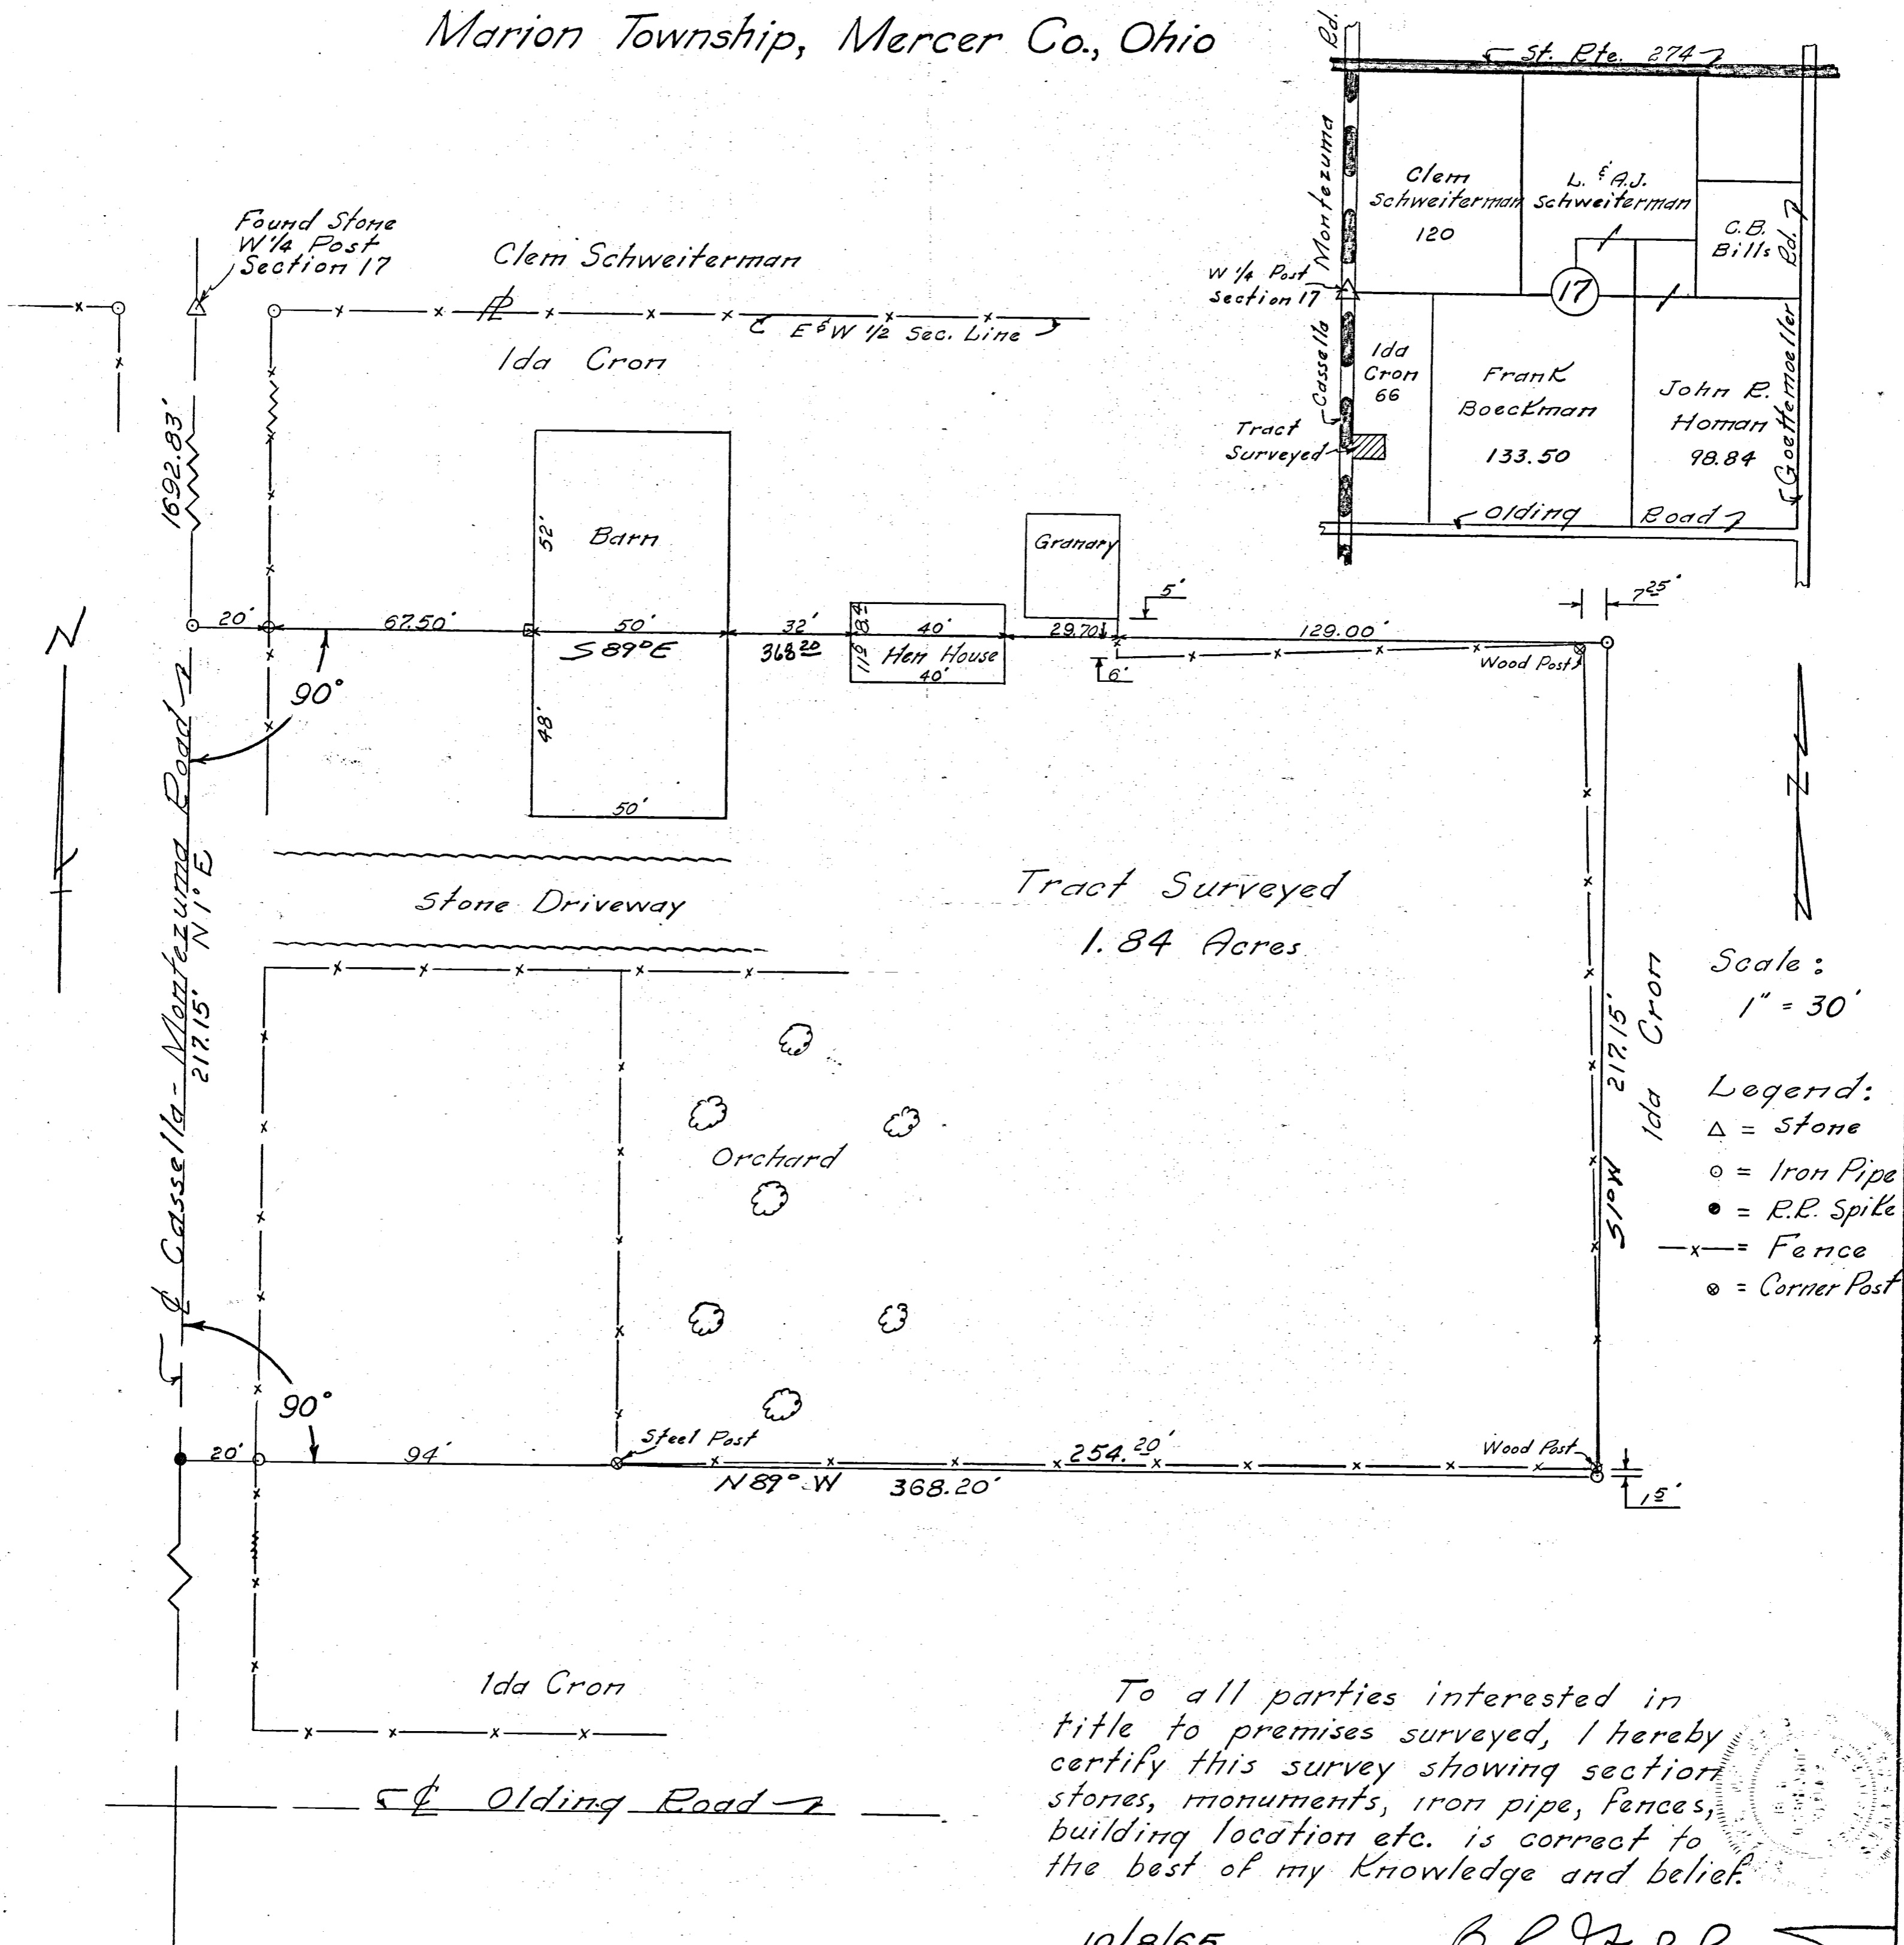 Marion Township, Mercer Co., Ohio
Rd.
St. Rte. 274
Clem
Schweiterman
120
L. & A.J.
Schweiterman
C.B.
Bills
Montezuma
Cassella
W 1/4 Post
Section 17
17
Ida
Cron
66
Frank
Boeckman
133.50
John R.
Homan
98.84
Goettemoeller Rd.
Tract
Surveyed
Olding Road
Found Stone
W 1/4 Post
Section 17
Clem Schweiterman
E & W 1/2 Sec. Line
Ida Cron
1692.83'
52'
Barn
Granary
5'
7 25'
20'
67.50'
50'
32'
8.4
40'
29.70
129.00'
S 89° E
368 20
11.6
Hen House
40'
6'
Wood Post
N
90°
48'
50'
℄ Cassella - Montezuma Road
217.15' N 1° E
Stone Driveway
Tract Surveyed
1.84 Acres
N
S 1° W 217.15'
Ida Cron
Scale:
1" = 30'
Legend:
△ = Stone
⊙ = Iron Pipe
● = R.R. Spike
—x— = Fence
⊗ = Corner Post
Orchard
90°
20'
94'
Steel Post
254. 20'
Wood Post
N 89° W 368.20'
1 5'
Ida Cron
℄ Olding Road
To all parties interested in
title to premises surveyed, I hereby
certify this survey showing section
stones, monuments, iron pipe, fences,
building location etc. is correct to
the best of my knowledge and belief.
10/8/65